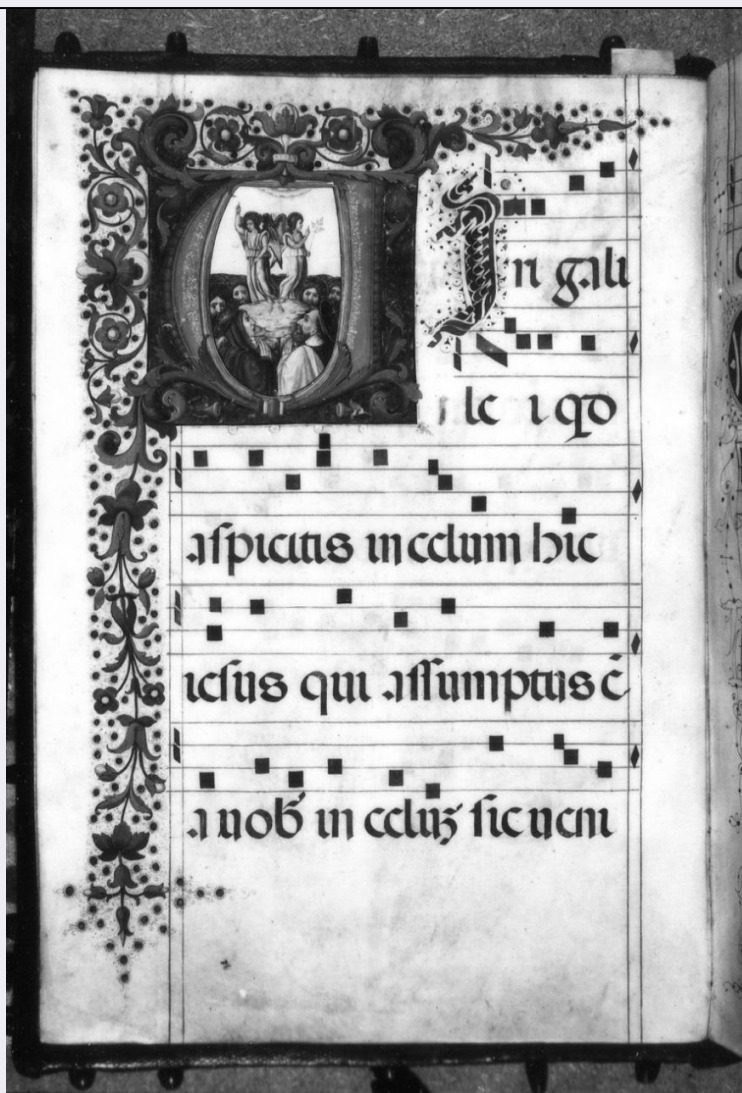 VIri gali
le i qd
aspicitis in celum hic
iesus qui assumptus ē
a uob̄ in celuꝫ sic ueni